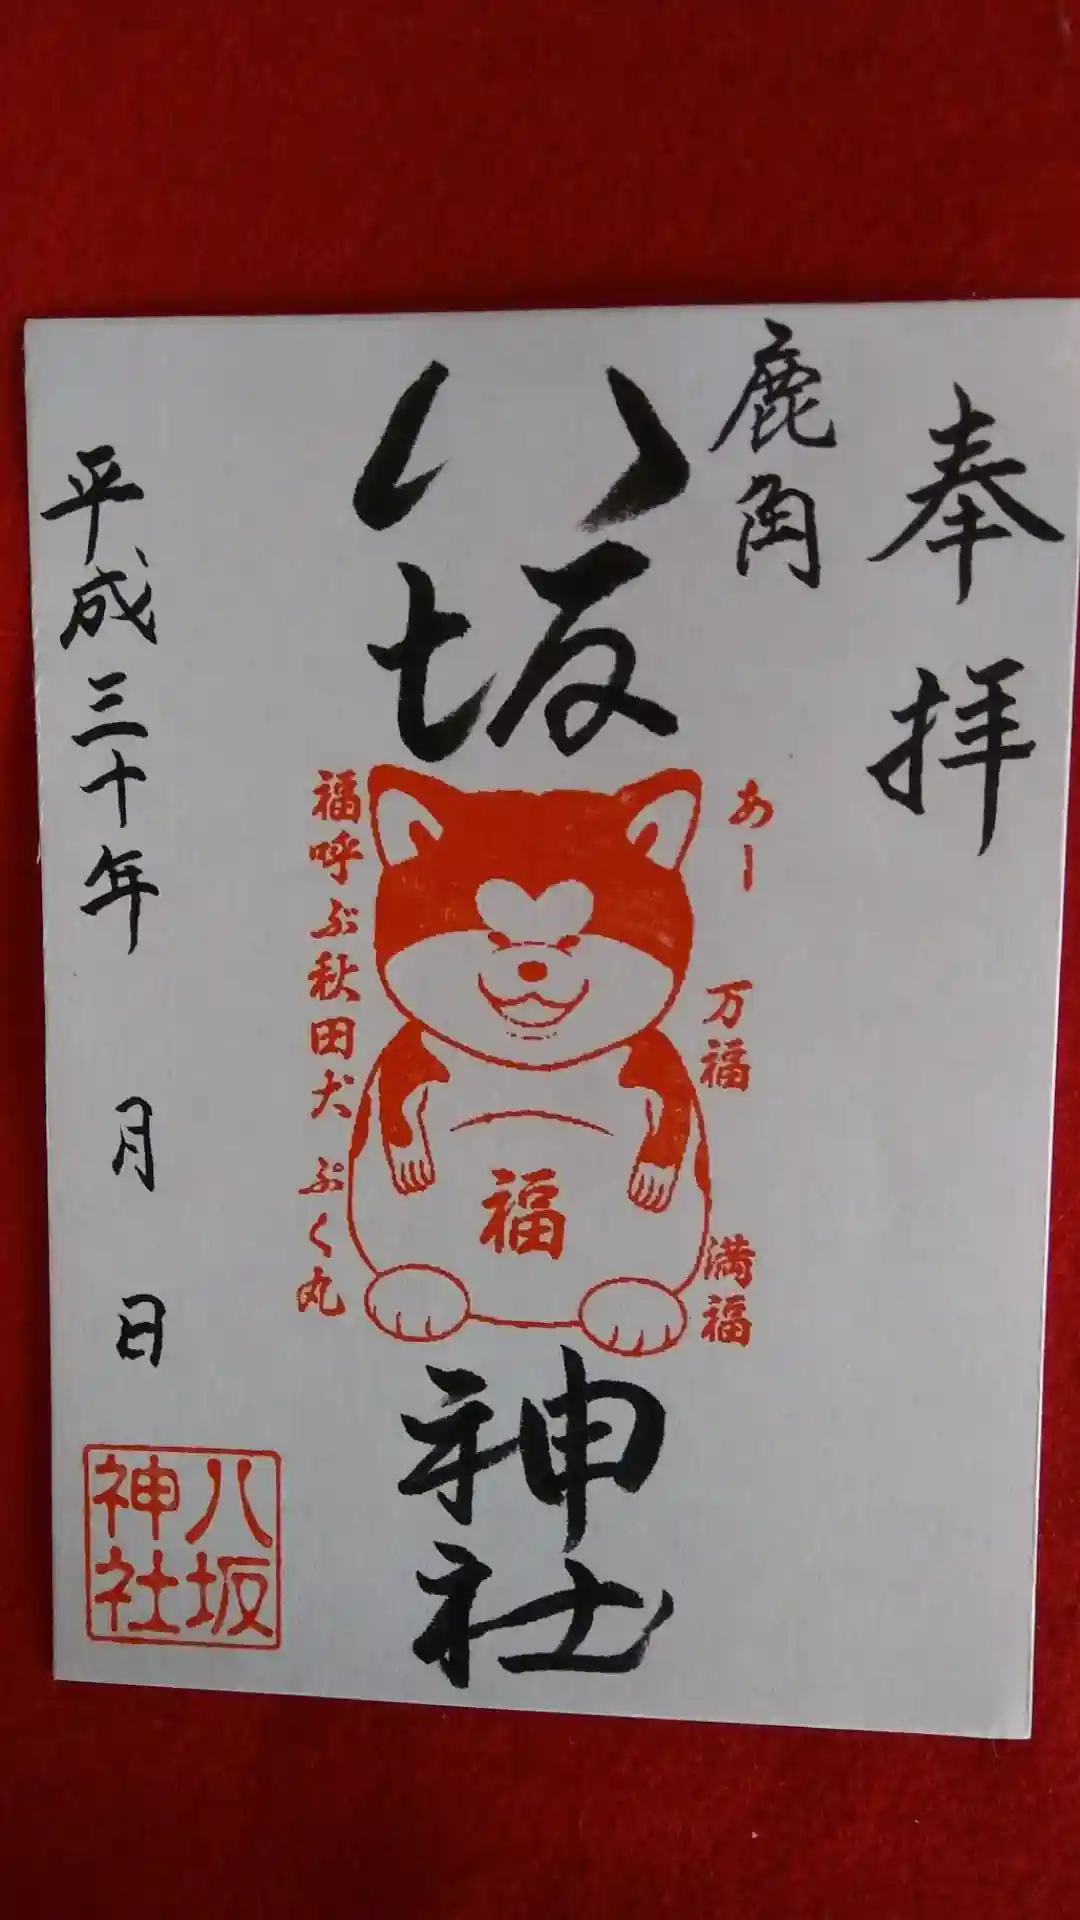 奉拝
鹿角
八坂神社
あー
万福
満福
福
福呼ぶ秋田犬 ぷく丸
平成三十年 月 日
八坂
神社